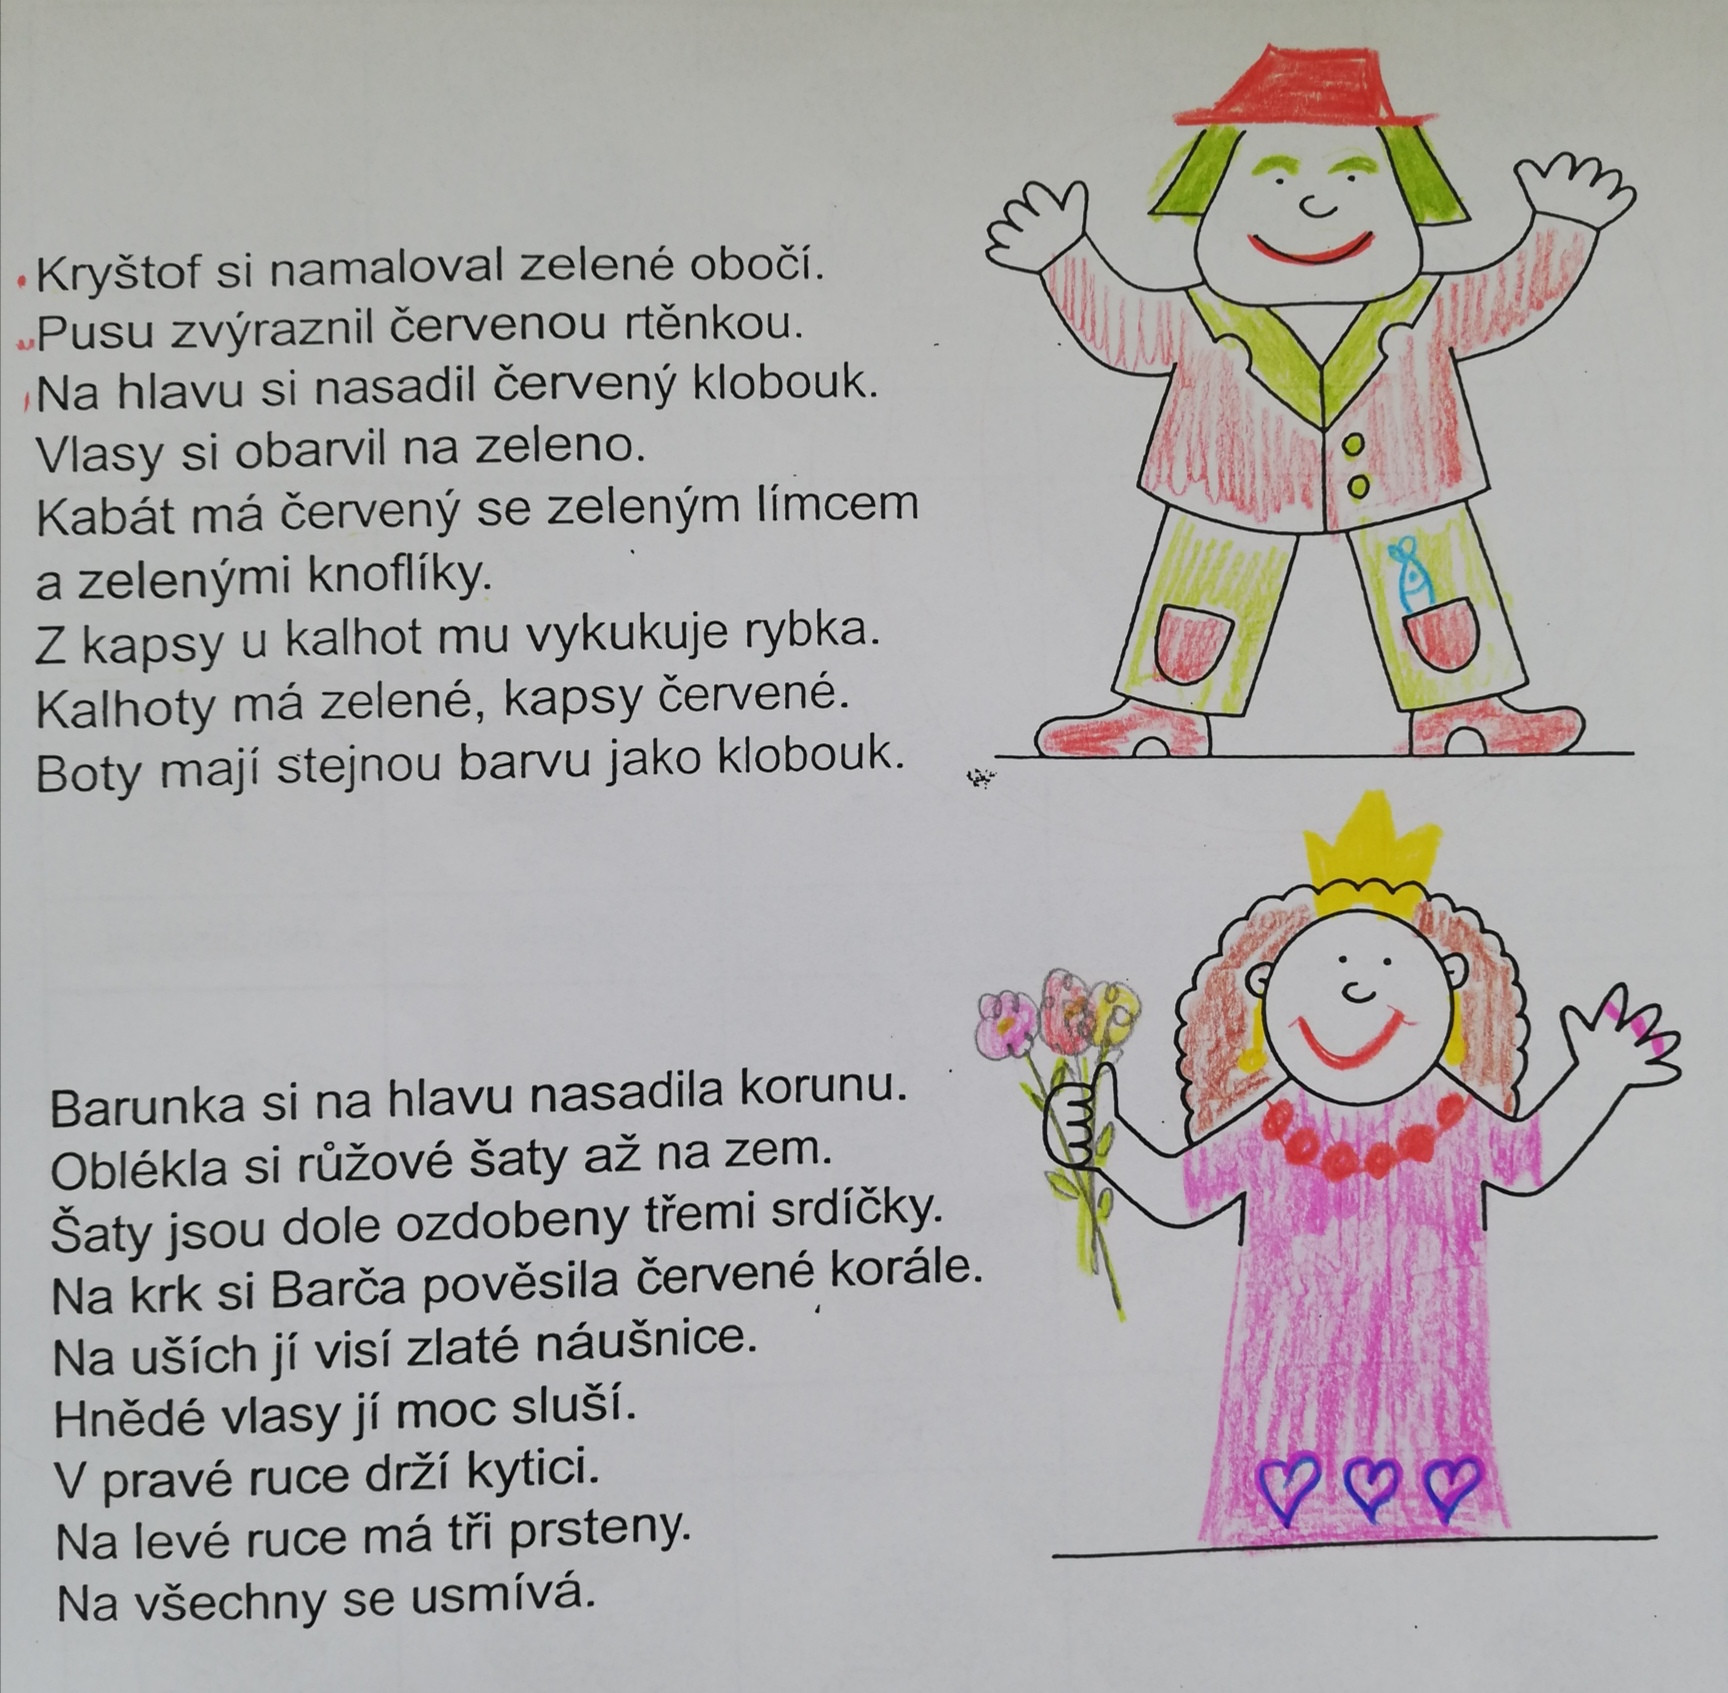 Kryštof si namaloval zelené obočí.
Pusu zvýraznil červenou rtěnkou.
Na hlavu si nasadil červený klobouk.
Vlasy si obarvil na zeleno.
Kabát má červený se zeleným límcem
a zelenými knoflíky.
Z kapsy u kalhot mu vykukuje rybka.
Kalhoty má zelené, kapsy červené.
Boty mají stejnou barvu jako klobouk.
Barunka si na hlavu nasadila korunu.
Oblékla si růžové šaty až na zem.
Šaty jsou dole ozdobeny třemi srdíčky.
Na krk si Barča pověsila červené korále.
Na uších jí visí zlaté náušnice.
Hnědé vlasy jí moc sluší.
V pravé ruce drží kytici.
Na levé ruce má tři prsteny.
Na všechny se usmívá.